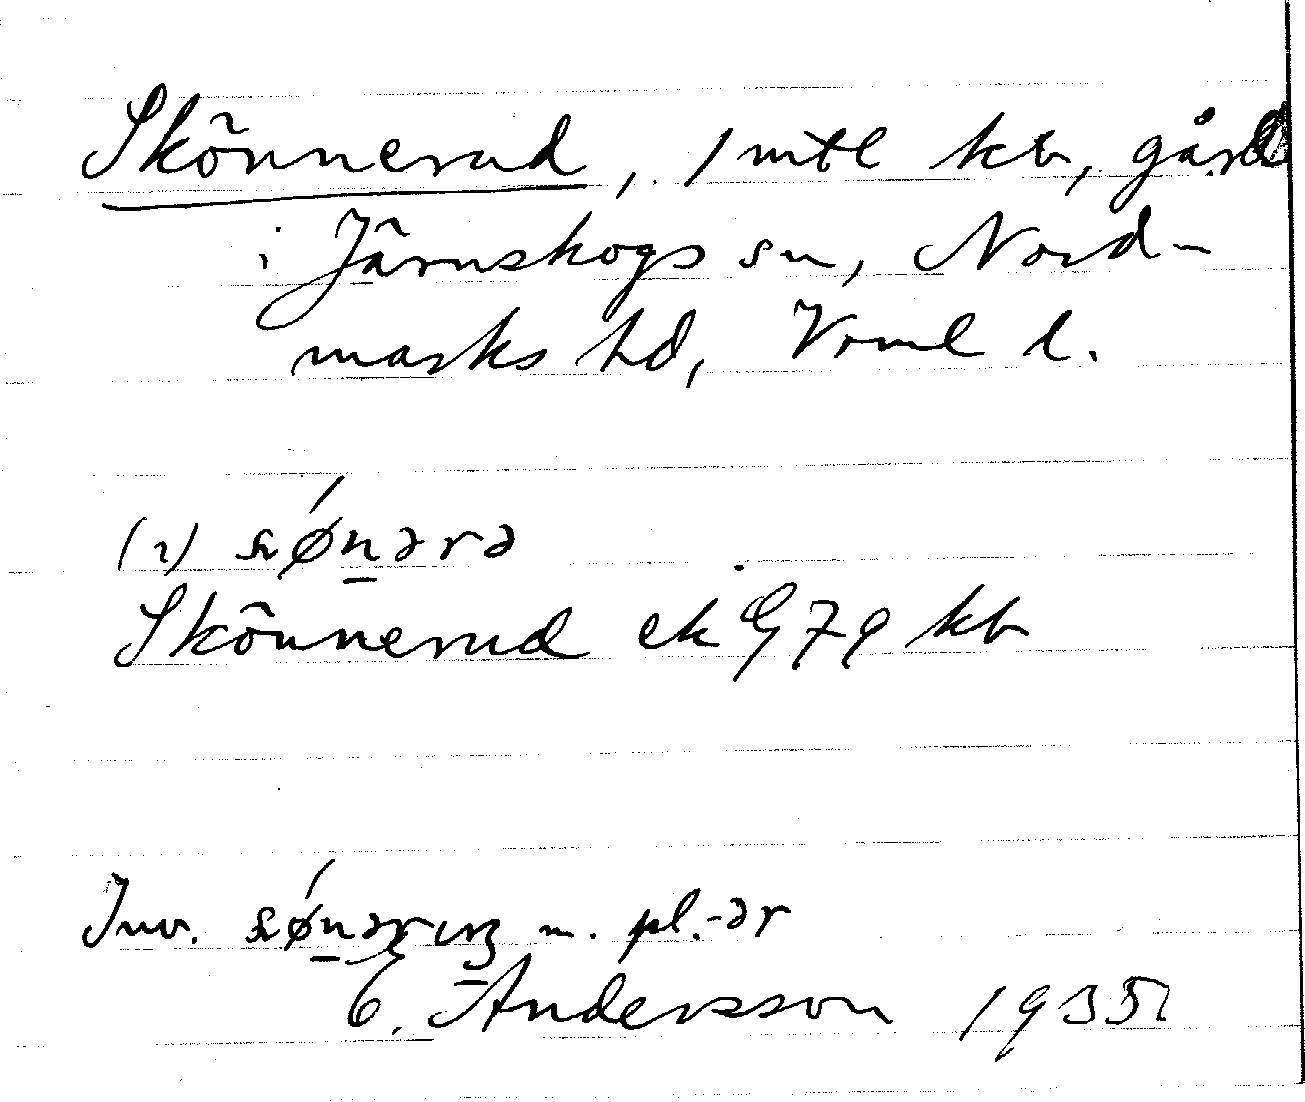 Skönnerud, 1 mtl kb, gård
i Järnskogs sn, Nord-
marks hd, Vrml l.
(i) sǿnərə
Skönnerud ek G 79 kb
Inv. m. pl. -ər
E. Andersson 1935